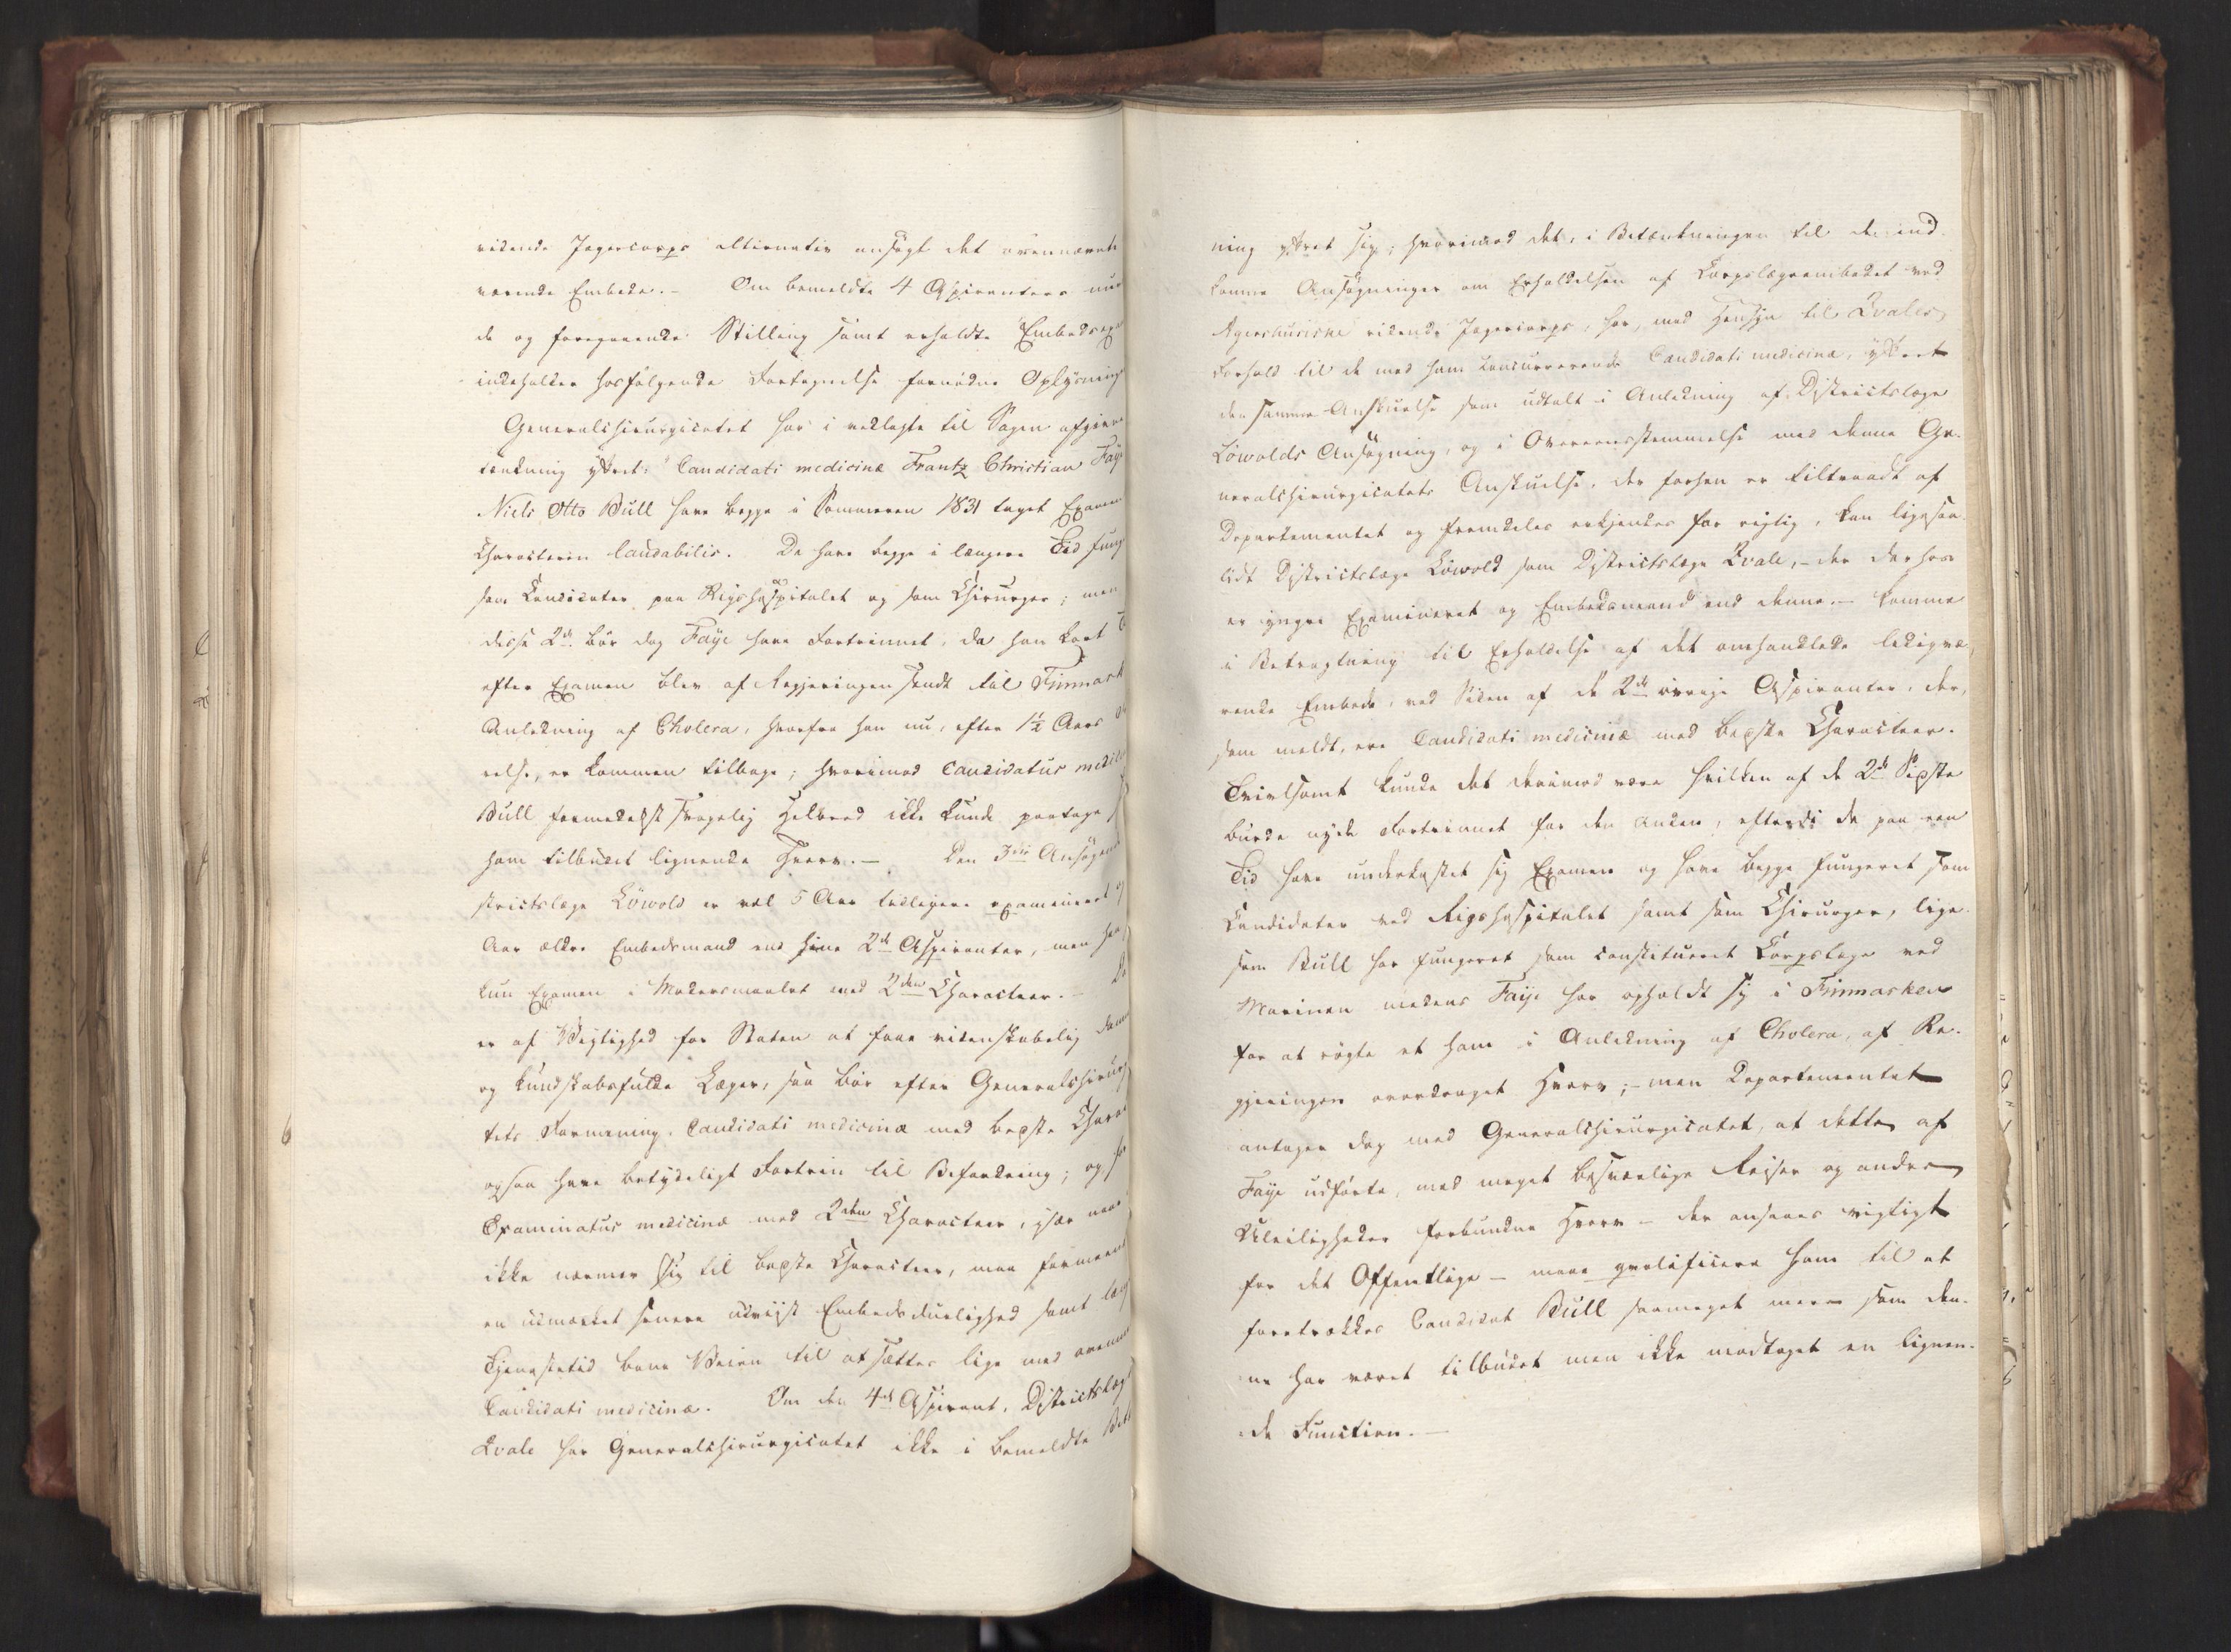 ridende Jægercorps alternativ ansøgt det ovennævnte
værende Embede. – Om bemeldte 4 Aspiranters nu
de og foregaaende Stilling samt erholdte Embedsexa
indeholder hosfølgende Fortegnelse fornødne Oplysning
Generalchirurgicatet har i vedlagte til Sagen afgivne
tænkning yttret: "Candidati medicinæ Frantz Christian Faye
Niels Otto Bull have begge i Sommeren 1831 taget Examen
Characteren laudabilis. De have begge i længere Tid fung
som Candidater paa Rigshospitalet og som Chirurger; men
disse 2de bør dog Faye have Fortrinnet, da han kort
efter Examen blev af Regjeringen sendt til Finmark
Anledning af Cholera, hvorfra han nu, efter 1½ Aars
relse, er kommen tilbage; hvorimod Candidatus medic
Bull formedelst svagelig Helbred ikke kunde paatage
ham tilbudet lignende Hverv. – Den 3die Ansøgende
strictslæge Løwold er vel 5 Aar tidligere examineret og
Aar ældre Embedsmand end hine 2de Aspiranter, men har
kun Examen i Modersmaalet med 2den Characteer. –
er af Vigtighed for Staten at faae videnskabelig dann
og kundskabsfulde Læger, saa bør efter Generalchirurg
tets Formening, Candidati medicinæ med bedste Charac
ogsaa have betydeligt Fortrin til Befordring; og
Examinatus medicinæ med 2den Characteer, især naar
ikke nærmer sig til bedste Characteer, maa formeent
en udmærket senere udviist Embedsduelighed samt læng
Tjenestetid bane Veien til at sættes lige med
Candidati medicinæ. Om den 4de Aspirant, Districtslæge
Qvale har Generalchirurgicatet ikke i bemeldte Bet
ning yttret sig; hvorimod det, i Betænkningen til de ind-
komne Ansøgninger om Erholdelsen af Corpslægeembedet ved
Agershusiske ridende Jægercorps, har, med Hensyn til Qvales
Forhold til de med ham concurrerende Candidati medicinæ, yttret
den samme Anskuelse som udtalt i Anledning af Districtslæge
Løwolds Ansøgning, og i Overeensstemmelse med denne Ge-
neralchirurgicatets Anskuelse, der forhen er tiltraadt af
Departementet og fremdeles erkjendes for rigtig, kan ligesaa
lidt Districtslæge Løwold som Districtslæge Qvale, – der derhos
er yngre Examineret og Embedsmand end denne. – komme
i Betragtning til Erholdelse af det omhandlede ledigvæ-
rende Embede, ved Siden af de 2de øvrige Aspiranter, der,
som meldt, ere Candidati medicinæ med bedste Characteer.
Tvivlsomt kunde det derimod være hvilken af de 2de Sidste
burde nyde Fortrinnet for den anden, efterdi de paa een
Tid have underkastet sig Examen og have begge fungeret som
Candidater ved Rigshospitalet samt som Chirurger, lige-
som Bull har fungeret som constitueret Corpslæge ved
Marinen medens Faye har opholdt sig i Finmarken
for at røgte et ham i Anledning af Cholera, af Re-
gjeringen overdraget Hverv; – men Departementet
antager dog med Generalchirurgicatet, at dette af
Faye udførte, med meget besværlige Reiser og andre
Uleiligheder forbundne Hverv – der ansees vigtigt
for det Offentlige – maae qvalificere ham til at
foretrækkes Candidat Bull saameget mere som den-
ne har været tilbudet men ikke modtaget en lignen-
de Function. –